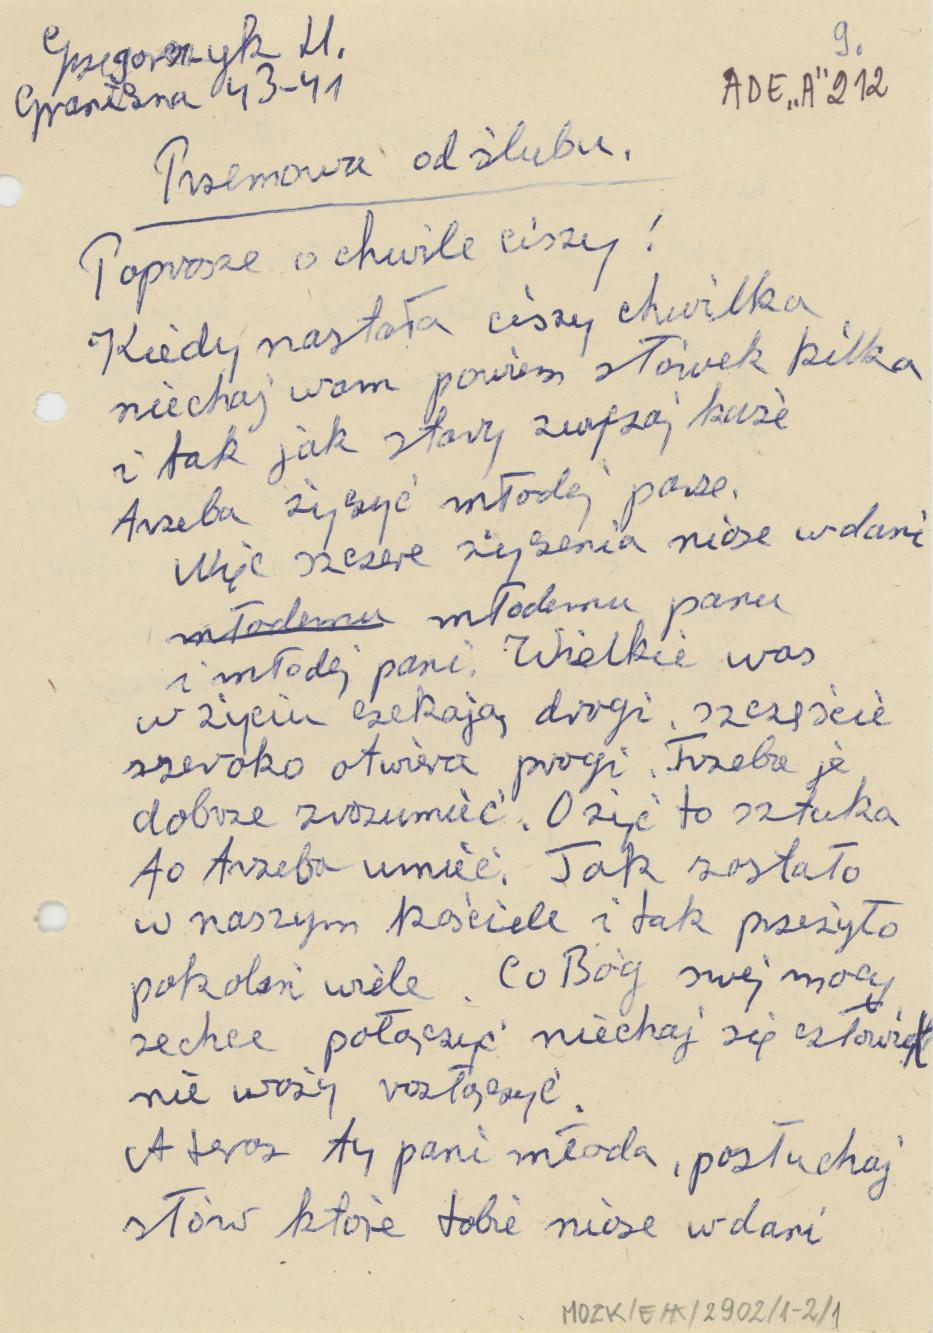 Grzegorszyk U.
Graniczna 43-41
9.
ADE „A" 212
Przemowa od ślubu.
Poprosze o chwile ciszy!
Kiedy nastała ciszy chwilka
niechaj wam powiem słówek kilka
i tak jak stary zwyczaj każe
trzeba życzyć młodej parze.
Więc szczere życzenia niose wdani
młodemu młodemu panu
i młodej pani. Wielkie was
w życiu czekają drogi. szczęście
szeroko otwiera progi. Trzeba je
dobrze zrozumieć. O żyć to sztuka
to trzeba umieć. Tak zostało
w naszym kościele i tak przeżyło
pokoleń wiele. Co Bóg swej mocy
zechce połączyć niechaj się człowiek
nie waży rozłączyć.
A teras ty pani młoda, posłuchaj
słów które tobie niose wdani
MOZK/EHK/2902/1-2/1